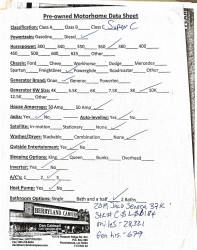 Pre-owned Motorhome Data Sheet
Classification: Class A Class B Class C Super C
Powertrain: Gasoline Diesel
Horsepower: 300 340 350 360 400
450 500 600 625 Other
Chassis: Ford Chevy Workhorse Dodge Mercedes
Spartan Freightliner Powerglide Roadmaster Other
Generator Brand: Onan Generac
Generator KW Size: 4K 5.5K 6K 7.5K 8K 10K
12.5K Other
House Amperage: 30 Amp 50 Amp
Jacks: Yes No Auto-leveling: Yes No
Satellite: In-motion Stationary None
Washer/Dryer: Stackable Combination None
Outside Entertainment: Yes No
Sleeping Options: King Queen Bunks Overhead
Inverter: Yes No
A/C's: 1 2 3
Heat Pump: Yes No
Bathroom Options: Single Bath and a half 2 Baths
BERRYLAND CAMPERS
Seneca 37K
miles - 28,321
Gen hrs - 679